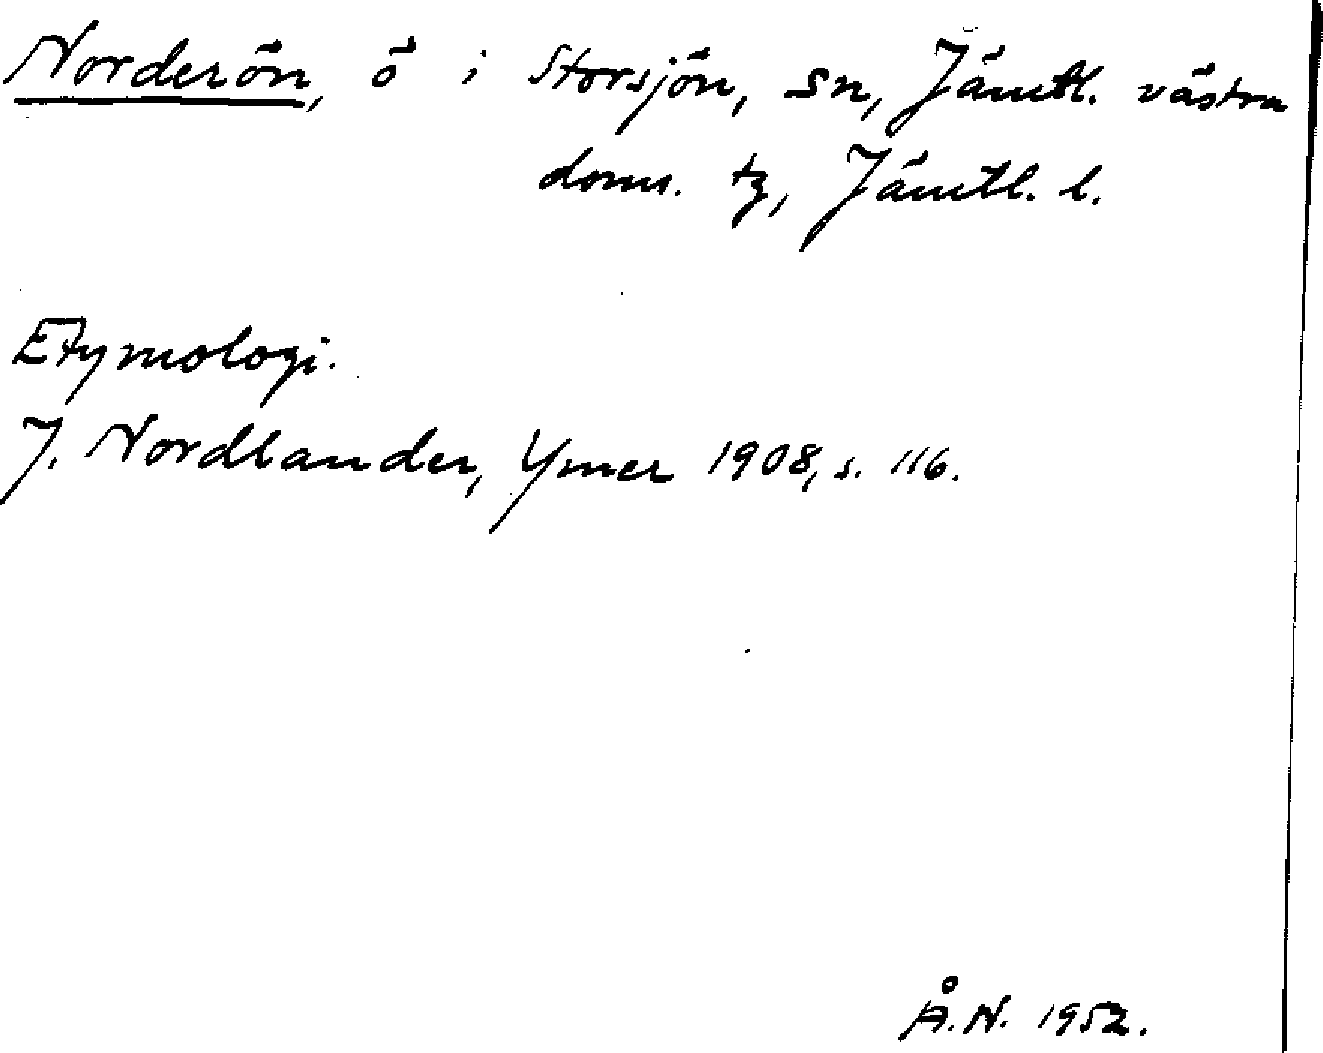 Norderön, ö i Storsjön, sn, Jämtl. västra
doms. tg, Jämtl. l.
Etymologi.
J. Nordlander, Ymer 1908, s. 116.
Å.N. 1952.